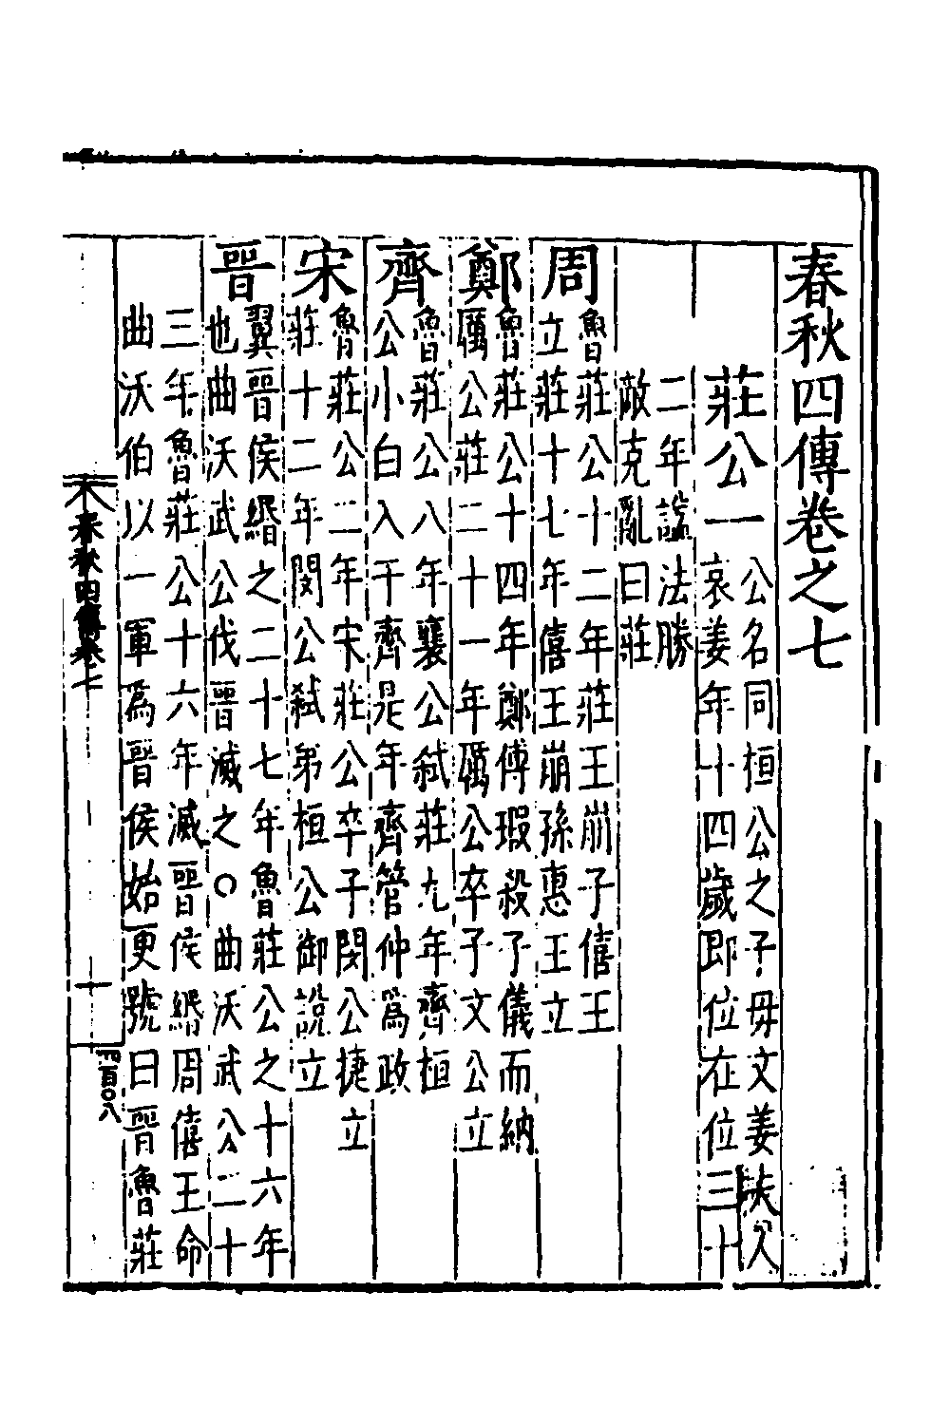 春秋四傳卷之七
莊公一
公名同桓公之子毋文姜夫人
哀姜年十四歲即位在位三十
二年諡法勝
敵克亂曰莊
周
魯莊公十二年莊王崩子僖王
立莊十七年僖王崩孫惠王立
鄭
魯莊公十四年鄭傅瑕殺子儀而納
厲公莊二十一年厲公卒子文公立
齊
魯莊公八年襄公弑莊九年齊桓
公小白入于齊是年齊管仲爲政
宋
魯莊公二年宋莊公卒子閔公捷立
莊十二年閔公弑弟桓公御說立
晉
翼晉侯緡之二十七年魯莊公之十六年
也曲沃武公伐晉滅之○曲沃武公二十
三年魯莊公十六年滅晉侯緡周僖王命
曲沃伯以一軍爲晉侯始更號曰晉魯莊
春秋四傳卷七
十
四百〇八